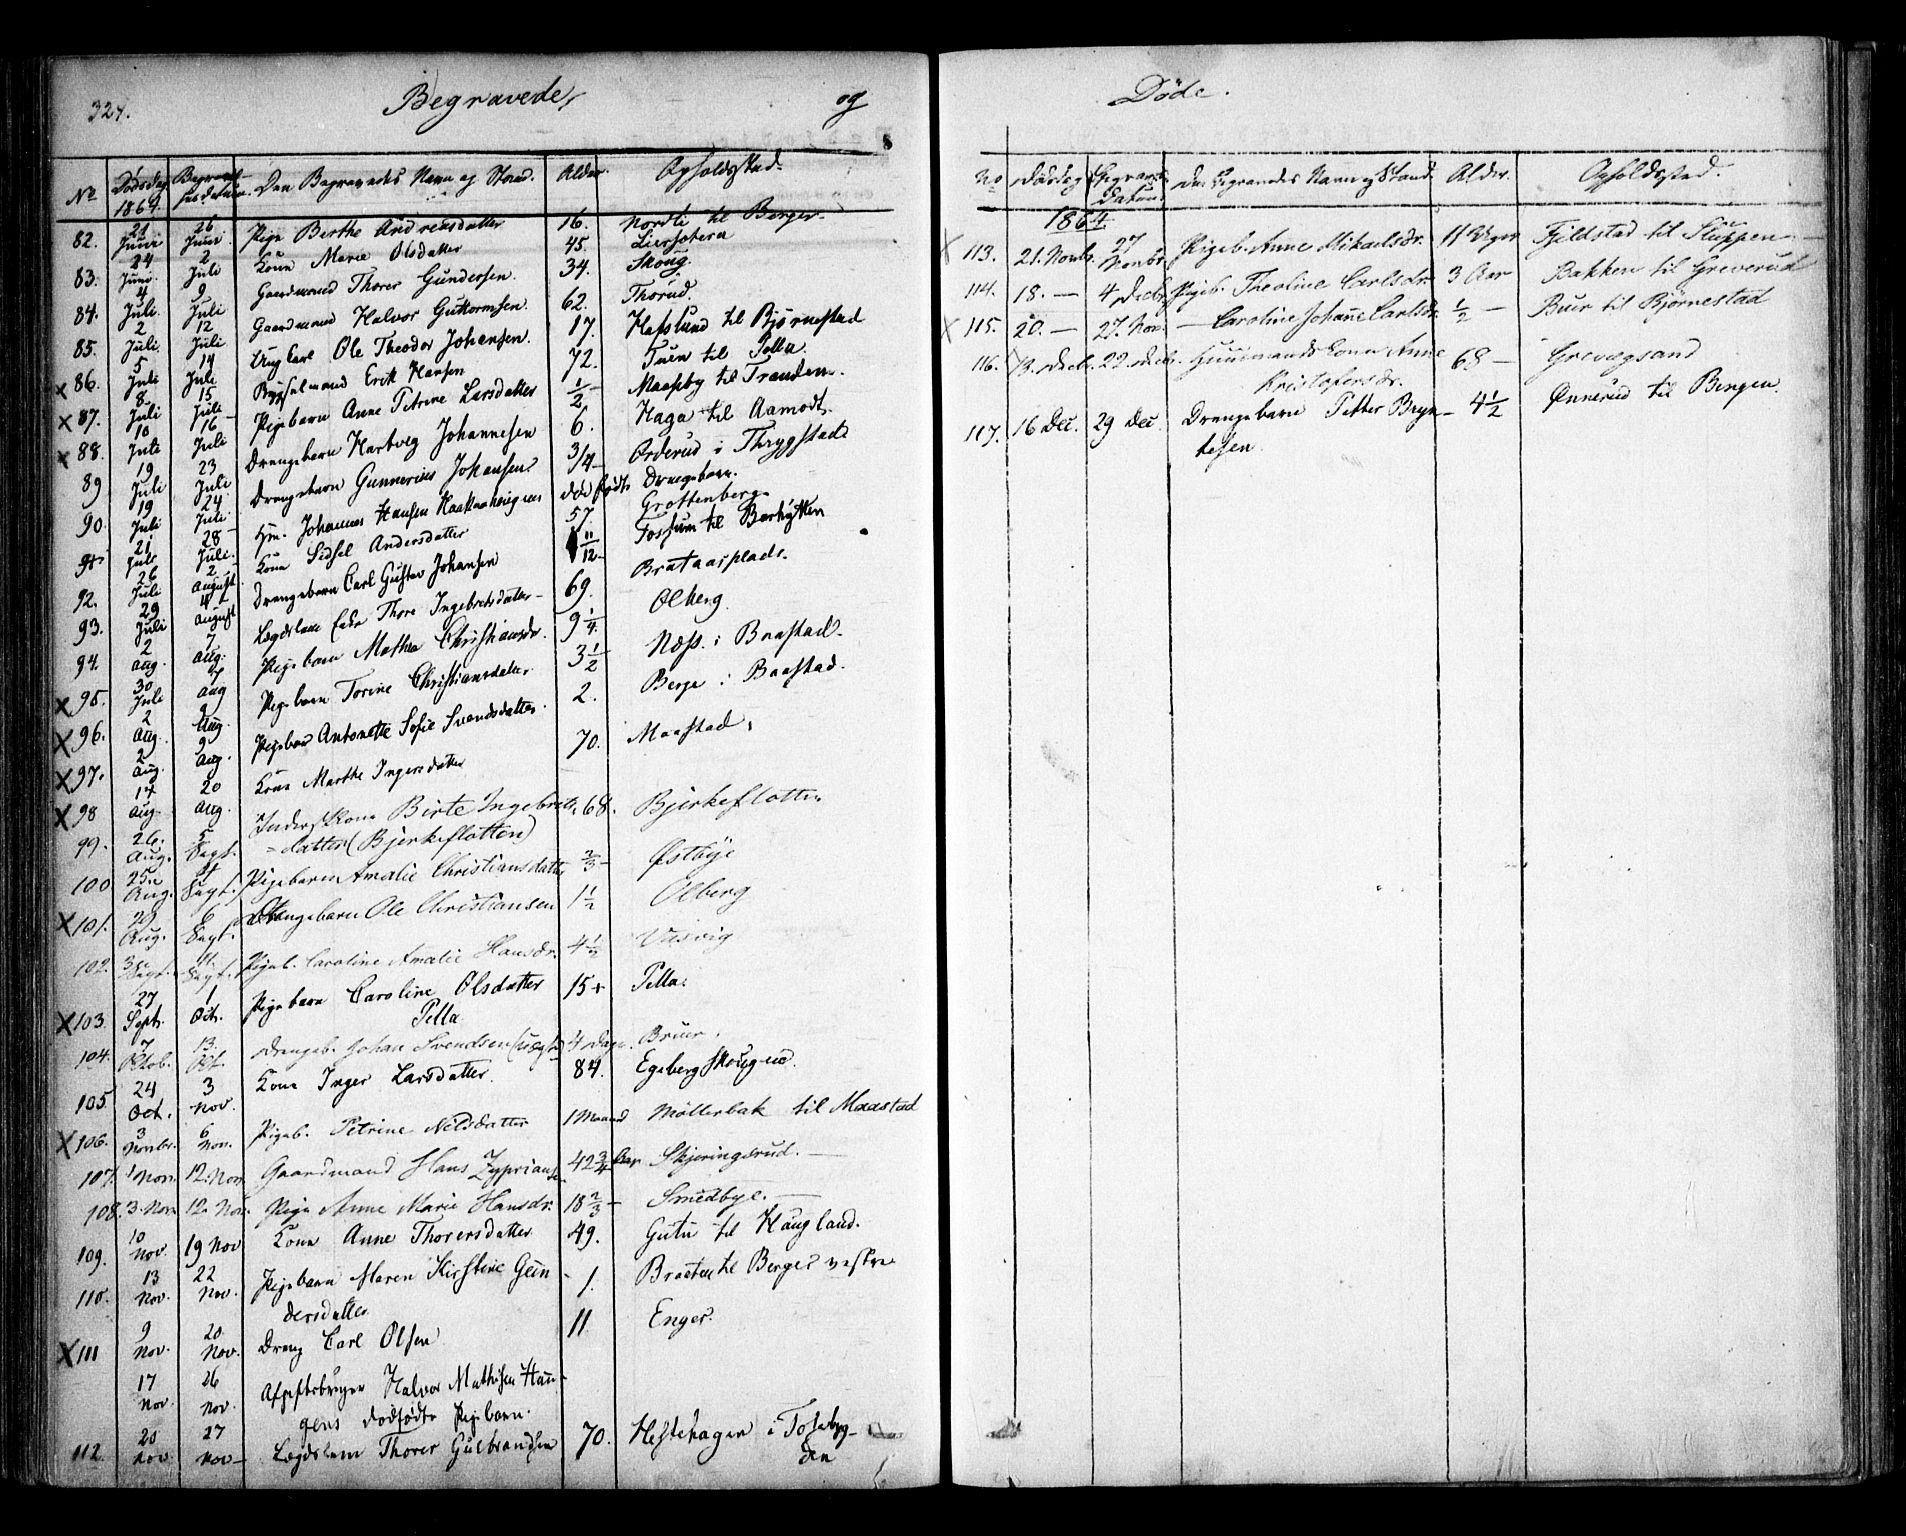 324.
Begravede
og
Døde.
No Dødsdag 1864. Begravelsesdatum Den Begravedes Navn og Stand. Alder. Opholdsstad.
82. 21 Juni 26 Juni Pige Berthe Andreasdatter 16. Nordli til Berger
83. 24 Juni 2 Juli Kone Marie Olsdatter 45.
84. 4 Juli 9 Juli Gaardmand Thorer Gundersen. 34. Skoug.
85. 2 Juli. 12 Juli Gaardmand Halvor Guttormsen. 62. Thorud.
x 86. 5 Juli 14 Juli Ung Carl Ole Theodor Johansen. 17. Hafslund til Bjørnestad
x 87. 8 Juli 15 Juli Bygselmand Erik Hansen 72. Tuen til Pella.
x 88. 10 Juli 16 Juli Pigebarn Anne Petrine Larsdatter 1/2 Maasby til Tranden.
89 19 Juli 23 Juli Drengebarn Hartvig Johannesen 6. Haga til Aamodt.
90. 19 Juli 24 Juli Drengebarn Gunnerius Johansen 3/4 Orderud i Thrygstad
91. 21 Juli 28 Juli. Hm. Johannes Hansen død født Drengebarn.
92. 26 Juli 2 August Kone Sidsel Andersdatter 57. Grottenberg.
93. 29 Juli 4 August Drengebarn Carl Gustav Johansen 11/12 Fossum til
94. 2 Aug. 7 Aug. Lægdslem Enke Thore Ingebretsdatter 69. Brataasplads.
x 95. 30 Juli 7 Aug Pigebarn Mathea Christiansdr. 9 1/4. Olberg.
x 96. 2 Aug. 9 Aug. Pigebarn Torine Christiansdatter 3 1/2 Næss. i Baastad.
x 97. 2 Aug. 9 Aug. Pigebarn Antonette Sofie Svendsdatter 2. Berge i Baastad.
x 98 17 Aug. 20 Aug. Kone Marthe Ingersdatter 70. Maastad.
99. 26. Aug. 5 Sept. Inderst Kone Birte Ingebrets 68. Bjerkeflotten
=datter (Bjerkeflotten)
100 25. Aug. Sept. Pigebarn Amalie Christiansdatter 2/3 Østbye
x 101. 29 Aug. 6 Sept. Drengebarn Ole Christiansen 1 1/2 Olberg
102. 3 Sept. 11. Sept. Pigeb. Caroline Amalie Hansdr. 4 1/2
x 103. 27 Sept. 1 Oct. Pigebarn Caroline Olsdatter 15 Pella.
Pella
104. 7 Oktob. 13. Okt. Drengeb. Johan Svendsen (uægte) 4 Dage. Bruer.
105. 24 Oct. 3 Nov. Kone Inger Larsdatter. 84. Egeberg
x 106. 3 Novbr. 6 Nov. Pigeb. Petrine Nilsdatter 1 Maaned Møllerbak til Maastad
107. 1 Nov. 12. Nov. Gaardmand Hans Zyprians 42 3/4 Aar Skjeringsrud. —
108. 3. Nov. 12. Nov. Pige Anne Marie Hansdr. 18 2/3 — Smedbye. —
109. 10 Nov. 19 Nov Kone Anne Thorersdatter 49. Gutu til Haugland.
110. 13 Nov. 22 Nov. Pigebarn Maren Kirstine Gun- 1. Braaten til Berger vestre
dersdatter
x 111 9 Nov. 20 Nov. Dreng Carl Olsen 11. Enger.
17 Nov. 26 Nov. Halvor Mathisen Hau-
gens dødfødte Pigebarn.
112 20 Nov. 27 Nov — Lægdslem Thorer Gulbrandsen 70. Hestehagen i Tosebyg-
den
No Dødsdag Begravelses Datum Den Begravedes Navn og Stand Alder. Opholdsstad.
1864
x 113. 21. Novbr. 27 Novbr. Pigeb. Anne Mikaelsdr. 11 Uger Fjeldstad til Sluppen —
114. 18. — 4 Decb. Pigeb. Theoline Carlsdr. 3 Aar Bakken til Greverud
x 115. 20. — 27. Nov. — Caroline Johanne Carlsdr. 1/2 — Buer til Bjørnestad
116. 13. Decb. 22. Decb. Huusmands Kone Anne 68 — Grevægsand
Kristofersdr.
117. 16 Dec. 29 Dec Drengebarn Petter Bryn- 4 1/2 Ønnerud til Bergen
telsen.